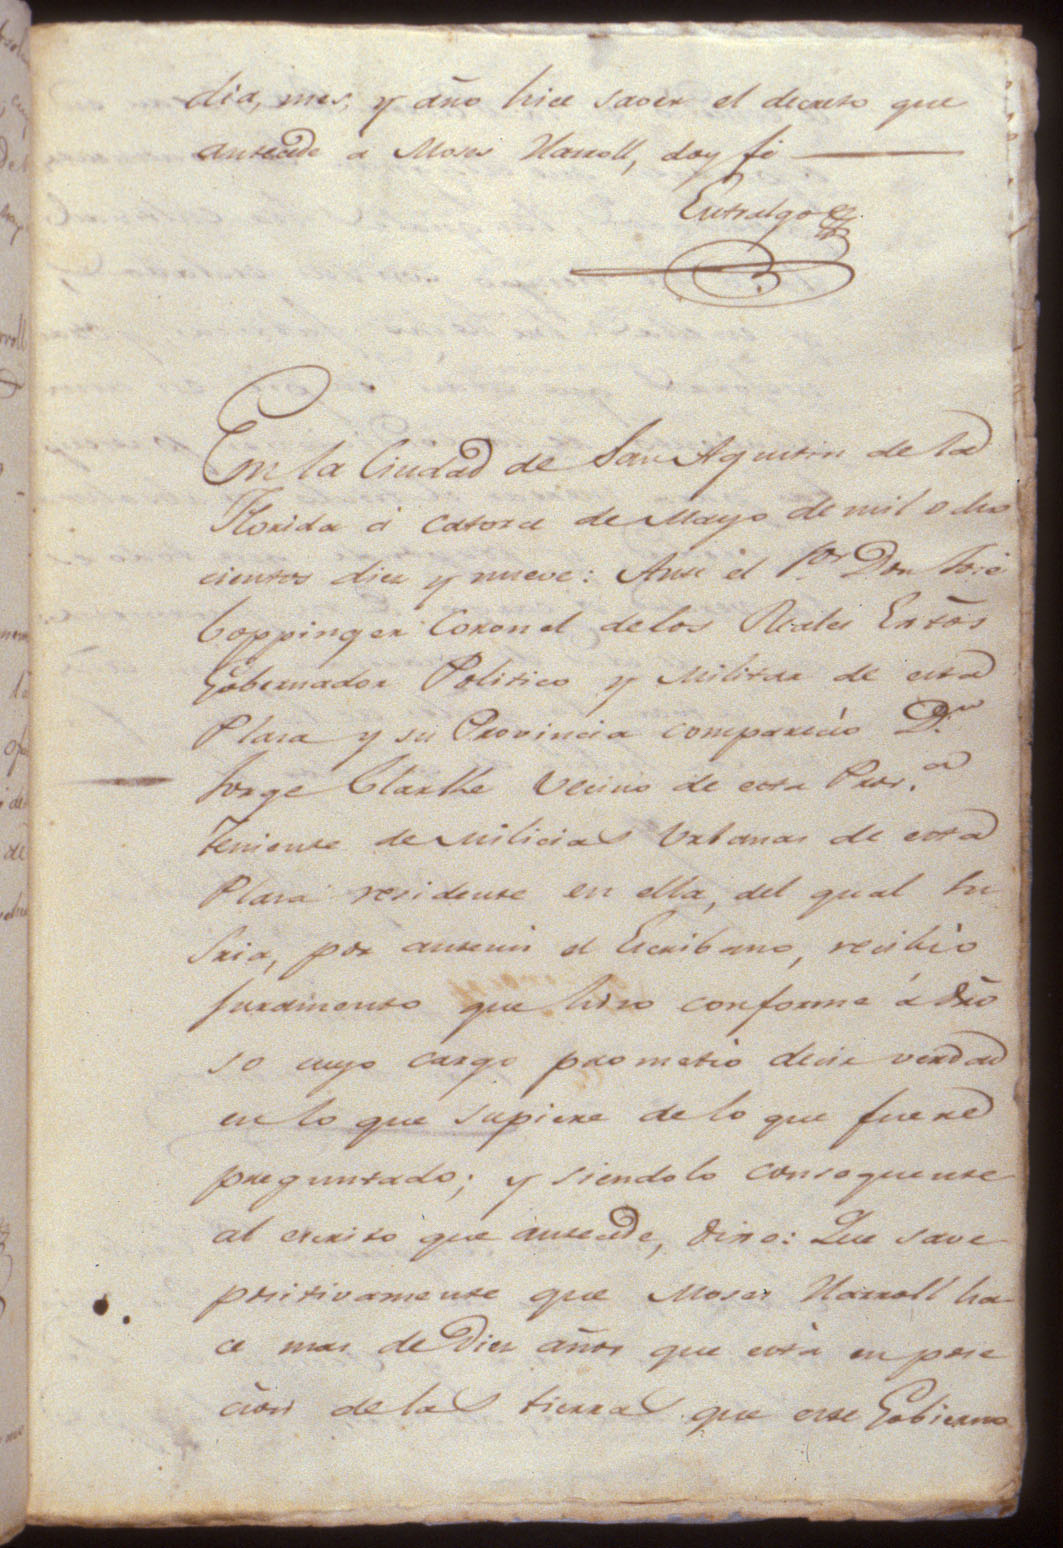 dia, mes, y año hice saver el decreto que
antecede a Moses Harroll, doy fé
Entralgo
En la Ciudad de San Agustin de la
Florida á catorce de Mayo de mil ocho
cientos diez y nueve: Ante el S.or Don José
Coppinger Coronel de los Reales Extõs
Gobernador Politico y Militar de esta
Plaza y su Provincia comparecio D.n
Jorge Clarke Vecino de esta Prov.a
Teniente de Milicias Urbanas de esta
Plaza residente en ella, del qual Su
Sria, por antemi el Escribano, recibió
juramento que hizo conforme á dr̃o
so cuyo cargo prometio decir verdad
en lo que supiere de lo que fuere
preguntado; y siendolo conseguente
al escrito que antecede, dixo: Que save
positivamente que Moses Harroll ha-
ce mas de Diez años que está en pose
cion de las tierras que este Gobierno